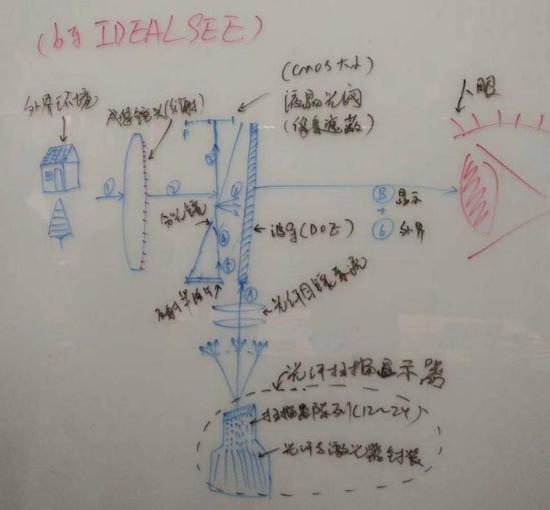 (by IDEALSEE)
外界环境
成像镜头(衍射)
(CMOS大小)
液晶光阀
(像素遮蔽)
人眼
①
②
分光镜
⑤
⑥
波导(DOE)
Ⓑ 显示
+
⑥ 外界
Ⓐ
光纤目镜系统
光纤扫描显示器
扫描器阵列(12~24)
光纤与激光器封装